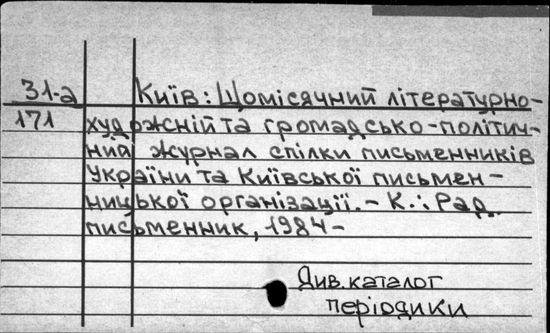 31-а Київ: Щомісячний літературно-
171 художній та громадсько-політич-
ний журнал спілки письменників
України та Київської письмен-
ницької організації. - К.: Рад.
письменник, 1984 -
Див. каталог
періодики